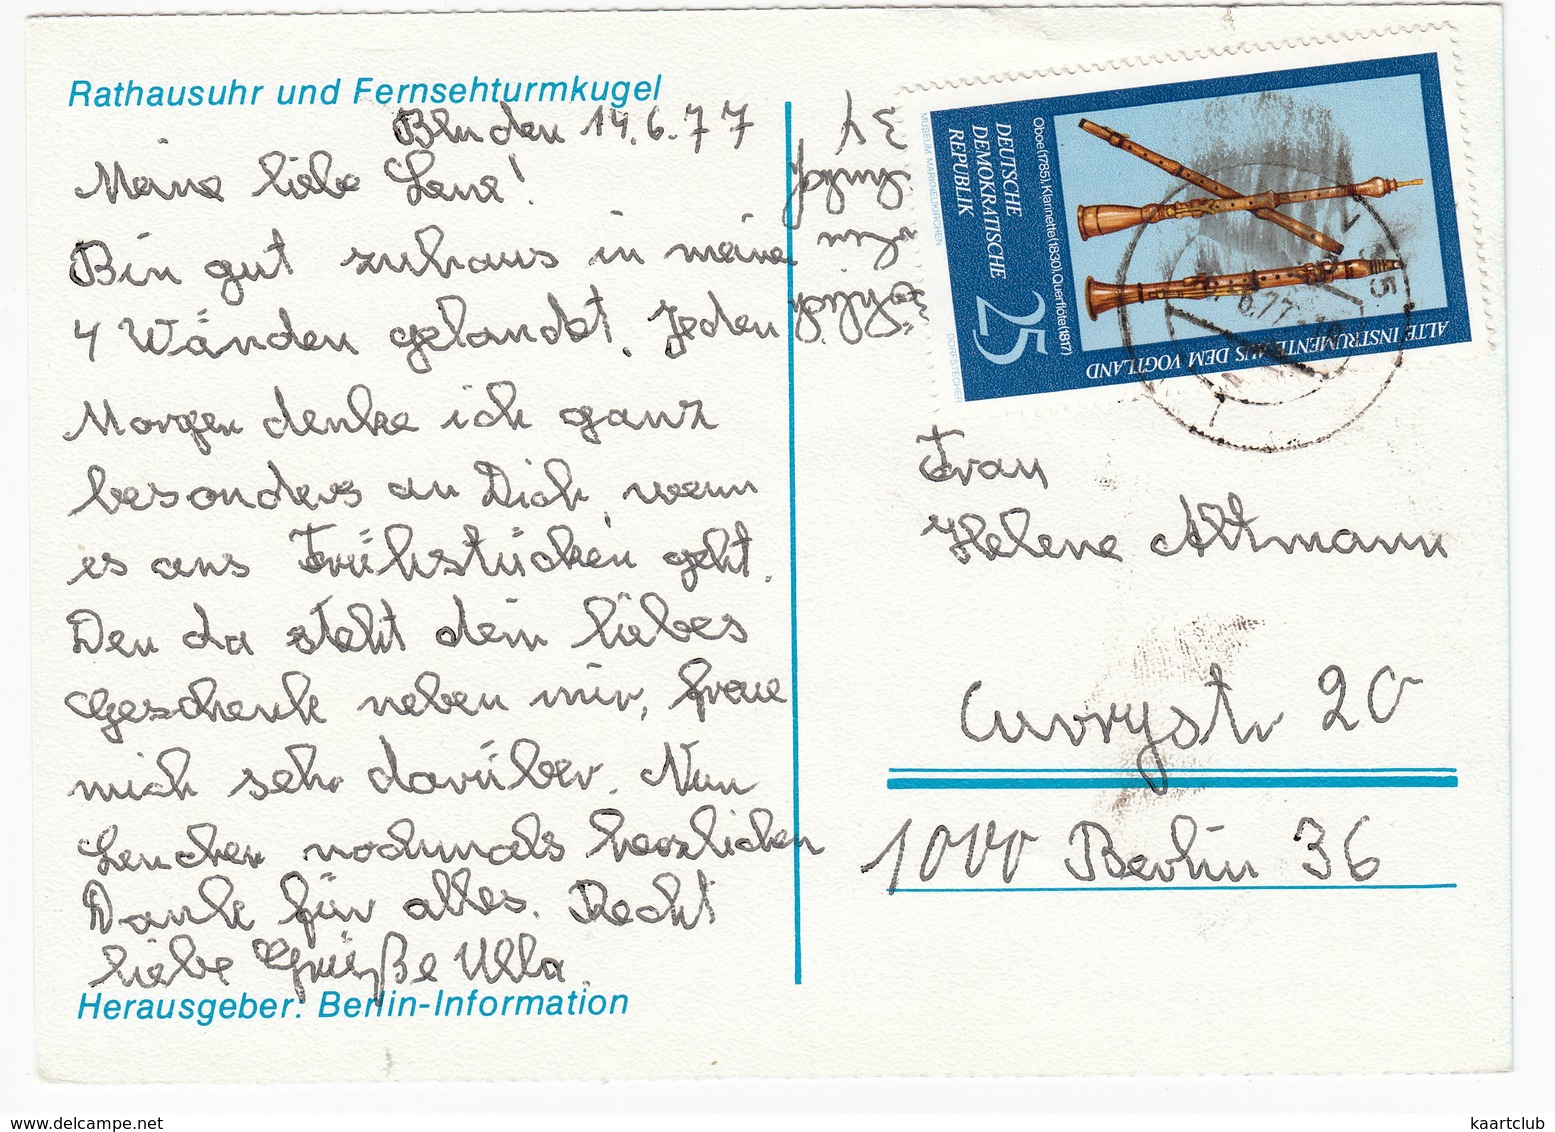 Rathausuhr und Fernsehturmkugel
Bln den 14.6.77
Meine liebe Lene!
Bin gut zuhaus in meine
4 Wänden gelandet. Jeden
Morgen denke ich ganz
besonders an Dich, wenn
es ans Frühstücken geht.
Den da steht dein liebes
Geschenk neben mir, freue
mich sehr darüber. Nun
Lenchen nochmals herzlichen
Dank für alles. Recht
liebe Grüße Ulla.
Herausgeber: Berlin-Information
DEUTSCHE
DEMOKRATISCHE
REPUBLIK
25
Oboe(1785),Klarinette(1830),Querflöte(1817)
ALTE INSTRUMENTE AUS DEM VOGTLAND
MUSEUM MARKNEUKIRCHEN
Frau
Helene Altmann
Cuvrystr 20
1000 Berlin 36
kaartclub